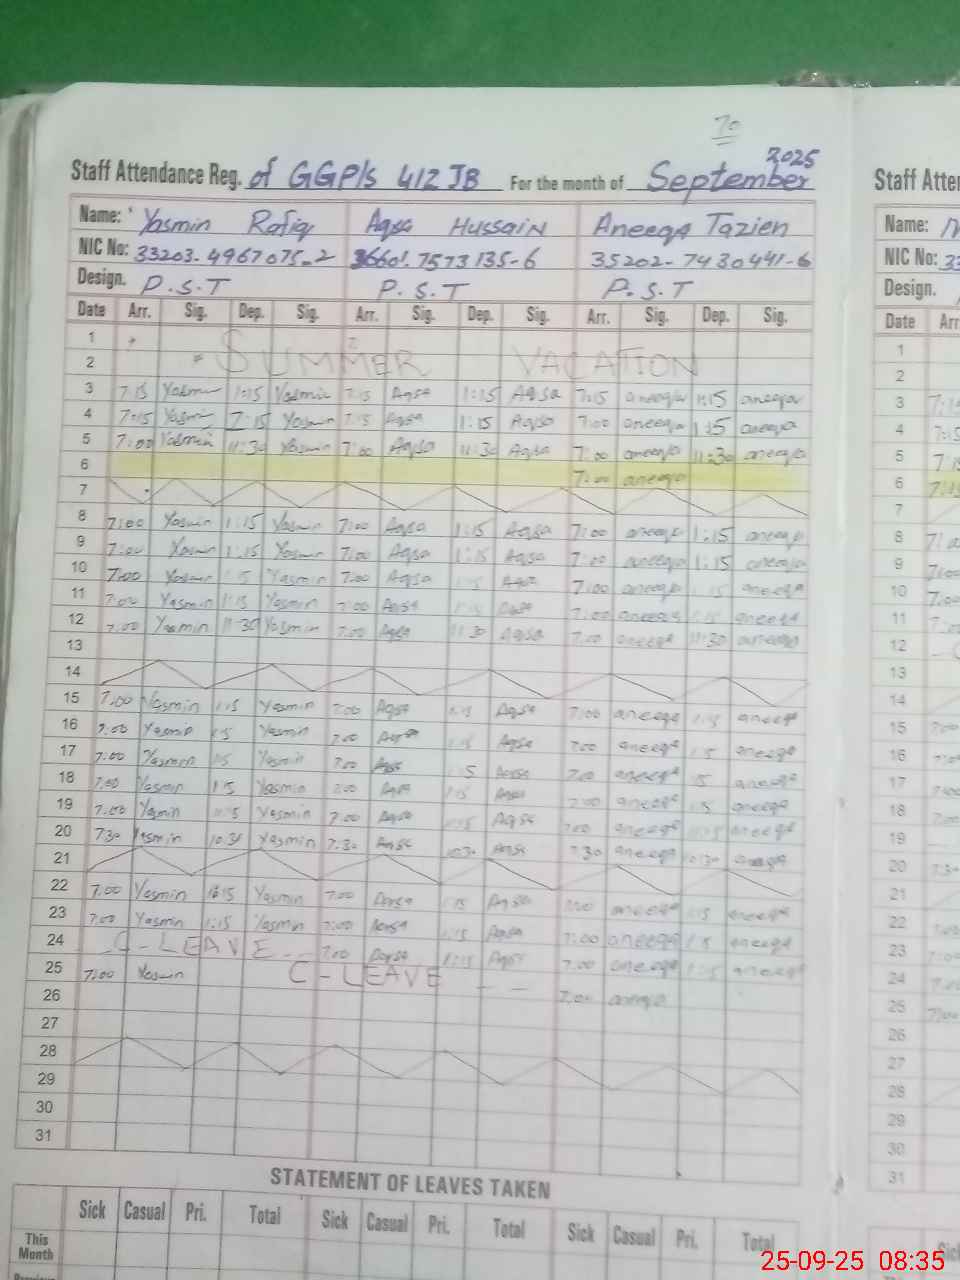 70
2025
Staff Attendance Reg. of GGP/s 412 JB For the month of September
Name: Yasmin Rafiq Aqsa Hussain Aneeqa Tazien
NIC No: 33203-4967075-2 36601-7573135-6 35202-7430441-6
Design. P.S.T P.S.T P.S.T
Date Arr. Sig. Dep. Sig. Arr. Sig. Dep. Sig. Arr. Sig. Dep. Sig.
1
2 SUMMER VACATION
3 7:15 Yasmin 1:15 Yasmin 7:15 Aqsa 1:15 Aqsa 7:15 aneeqa 1:15 aneeqa
4 7:15 Yasmin 7:15 Yasmin 7:15 Aqsa 1:15 Aqsa 7:00 aneeqa 1:15 aneeqa
5 7:00 Yasmin 11:30 Yasmin 7:00 Aqsa 11:30 Aqsa 7:00 aneeqa 11:30 aneeqa
6 7:00 aneeqa
7
8 7:00 Yasmin 1:15 Yasmin 7:00 Aqsa 1:15 Aqsa 7:00 aneeqa 1:15 aneeqa
9 7:00 Yasmin 1:15 Yasmin 7:00 Aqsa 1:15 Aqsa 7:00 aneeqa 1:15 aneeqa
10 7:00 Yasmin Yasmin 7:00 Aqsa Aqsa 7:00 aneeqa 1:15 aneeqa
11 7:00 Yasmin 1:15 Yasmin 7:00 Aqsa 1:15 Aqsa 7:00 aneeqa 1:15 aneeqa
12 7:00 Yasmin 11:30 Yasmin 7:00 Aqsa 11:30 Aqsa 7:00 aneeqa 11:30 aneeqa
13
14
15 7:00 Yasmin 1:15 Yasmin 7:00 Aqsa 1:15 Aqsa 7:00 aneeqa 1:15 aneeqa
16 7:00 Yasmin Yasmin 7:00 Aqsa 1:15 Aqsa 7:00 aneeqa aneeqa
17 7:00 Yasmin Yasmin 7:00 Aqsa Aqsa 7:00 aneeqa aneeqa
18 7:00 Yasmin 1:15 Yasmin 7:00 Aqsa 1:15 Aqsa 7:00 aneeqa aneeqa
19 7:00 Yasmin Yasmin 7:00 Aqsa 1:15 Aqsa 7:00 aneeqa aneeqa
20 7:30 Yasmin 10:30 Yasmin 7:30 Aqsa 10:30 Aqsa 7:30 aneeqa 10:30 aneeqa
21
22 7:00 Yasmin Yasmin 7:00 Aqsa 1:15 Aqsa aneeqa 1:15 aneeqa
23 7:00 Yasmin 1:15 Yasmin 7:00 Aqsa 1:15 Aqsa 7:00 aneeqa aneeqa
24 C-LEAVE 7:00 Aqsa 1:15 Aqsa 7:00 aneeqa 1:15 aneeqa
25 7:00 Yasmin C-LEAVE 7:00 aneeqa
26
27
28
29
30
31
STATEMENT OF LEAVES TAKEN
Sick Casual Pri. Total Sick Casual Pri. Total Sick Casual Pri. Total
This Month
Staff Atte
Name:
NIC No: 33
Design.
Date Arr
1
2
3
4
5
6
7
8
9
10
11
12
13
14
15
16
17
18
19
20
21
22
23
24
25
26
27
28
29
30
31
25-09-25 08:35